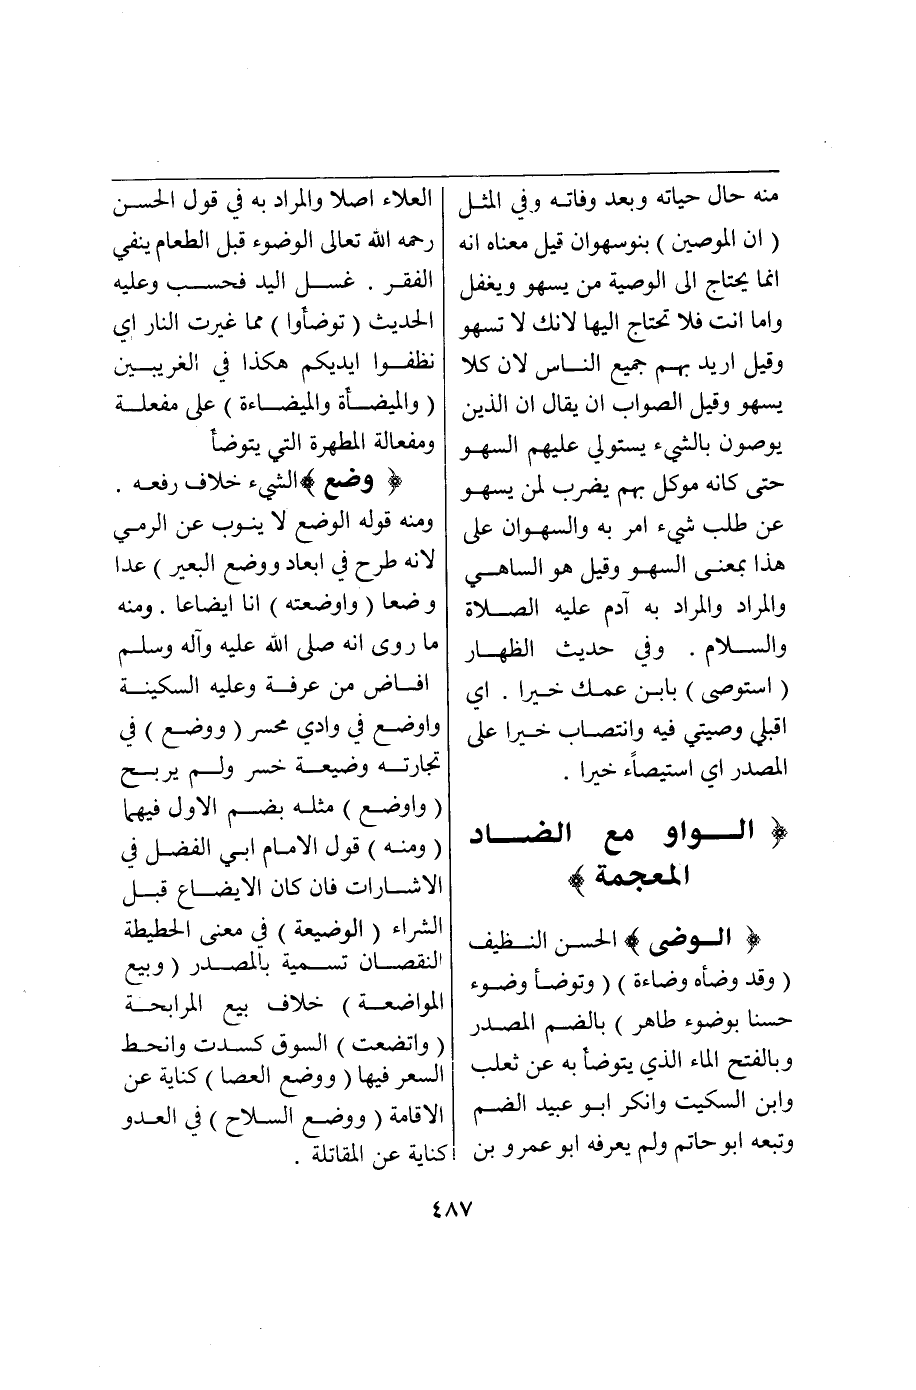 منه حال حياته وبعد وفاته وفي المثل
( ان الموصين ) بنوسهوان قيل معناه انه
انما يحتاج الى الوصية من يسهو ويغفل
واما انت فلا تحتاج اليها لانك لا تسهو
وقيل اريد بهم جميع الناس لان كلا
يسهو وقيل الصواب ان يقال ان الذين
يوصون بالشيء يستولي عليهم السهو
حتى كانه موكل بهم يضرب لمن يسهو
عن طلب شيء امر به والسهوان على
هذا بمعنى السهو وقيل هو الساهي
والمراد والمراد به آدم عليه الصلاة
والسلام . وفي حديث الظهار
( استوصى ) بابن عمك خيرا . اي
اقبلي وصيتي فيه وانتصاب خيرا على
المصدر اي استيصاء خيرا .
﴿ الواو مع الضاد
المعجمة ﴾
﴿ الوضى ﴾ الحسن النظيف
( وقد وضأه وضاءة ) ( وتوضأ وضوء
حسنا بوضوء طاهر ) بالضم المصدر
وبالفتح الماء الذي يتوضأ به عن ثعلب
وابن السكيت وانكر ابو عبيد الضم
وتبعه ابو حاتم ولم يعرفه ابو عمرو بن
العلاء اصلا والمراد به في قول الحسن
رحمه الله تعالى الوضوء قبل الطعام ينفي
الفقر . غسل اليد فحسب وعليه
الحديث ( توضأوا ) مما غيرت النار اي
نظفوا ايديكم هكذا في الغريبين
( والميضأة والميضاءة ) على مفعلة
ومفعالة المطهرة التي يتوضأ
﴿ وضع ﴾ الشيء خلاف رفعه .
ومنه قوله الوضع لا ينوب عن الرمي
لانه طرح في ابعاد ووضع البعير ) عدا
وضعا ( واوضعته ) انا ايضاعا . ومنه
ما روى انه صلى الله عليه وآله وسلم
افاض من عرفة وعليه السكينة
واوضع في وادي محسر ( ووضع ) في
تجارته وضيعة خسر ولم يربح
( واوضع ) مثله بضم الاول فيهما
( ومنه ) قول الامام ابي الفضل في
الاشارات فان كان الايضاع قبل
الشراء ( الوضيعة ) في معنى الحطيطة
النقصان تسمية بالمصدر ( وبيع
المواضعة ) خلاف بيع المرابحة
( واتضعت ) السوق كسدت وانحط
السعر فيها ( ووضع العصا ) كناية عن
الاقامة ( ووضع السلاح ) في العدو
كناية عن المقاتلة .
٤٨٧